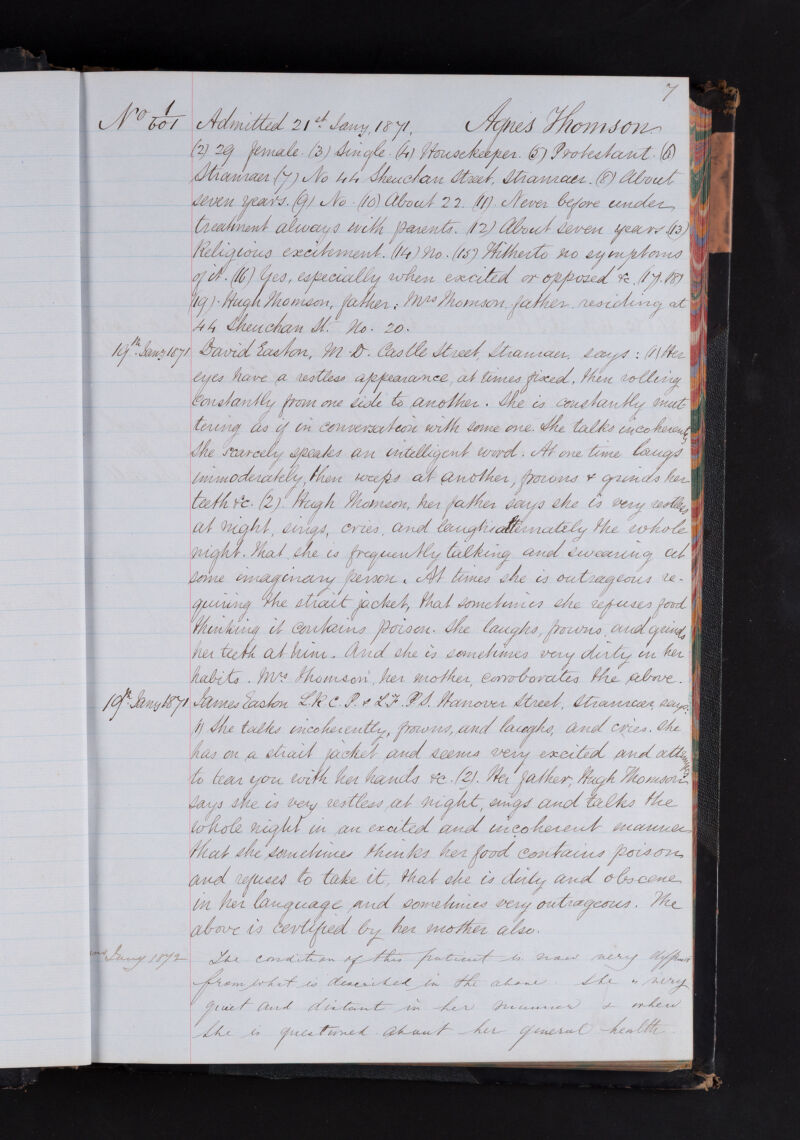 7
No 1/601 Admitted 21st Jany. 1871. Agnes Thomson
(2) 29 female (3) Single (4) Housekeeper (5) Protestant (6)
Stranraer (7) No 44 Sheuchan Street, Stranraer. (8) About
seven years. (9) No. (10) About 22. (11) Never before under
treatment always with parents. (12) About seven years (13)
Religious excitement. (14) No. (15) Hitherto no symptoms
of it. (16) Yes, especially when excited or opposed &c. (17. 18)
(19) Hugh Thomson, father; Mrs Thomson father residing at
44 Sheuchan St. No. 20.
19th Jany 1871 David Easton, M.D. Castle Street, Stranraer, says: (1) Her
eyes have a restless appearance, at times fixed, then rolling
constantly from one side to another. She is constantly mut-
tering as if in conversation with some one. She talks incoherently
She scarcely speaks an intelligent word. At one time laugs
immoderately, then weeps at another, frowns & grinds her
teeth &c. (2) Hugh Thomson, her father says she is very restless
at night, sings, cries, and laughs alternately the whole
night. That she is frequently talking and swearing at
some imaginary person. At times she is outrageous re-
quiring the strait jacket, that sometimes she refuses food
thinking it contains poison. She laughs, frowns, and grinds
her teeth at him. And she is sometimes very dirty in her
habits. Mrs Thomson, her mother, corroborates the above.
19th Jany 1871 James Easton L.R.C.P. & L.F.P.S. Hanover Street, Stranraer, says:
1) She talks incoherently, frowns, and laughs, and cries. She
has on a strait jacket and seems very excited and attempts
to tear you with her hands &c. (2) Her father, Hugh Thomson
says she is very restless at night, sings and talks the
whole night in an excited and incoherent manner
that she sometimes thinks her food contains poison
and refuses to take it, that she is dirty and obscene
in her language and sometimes very outrageous. The
above is certified by her mother also.
Jany 1872 The condition of this patient is now very different
from what is described in the above. She is very
quiet and distant in her manner & when
she is questioned about her general health